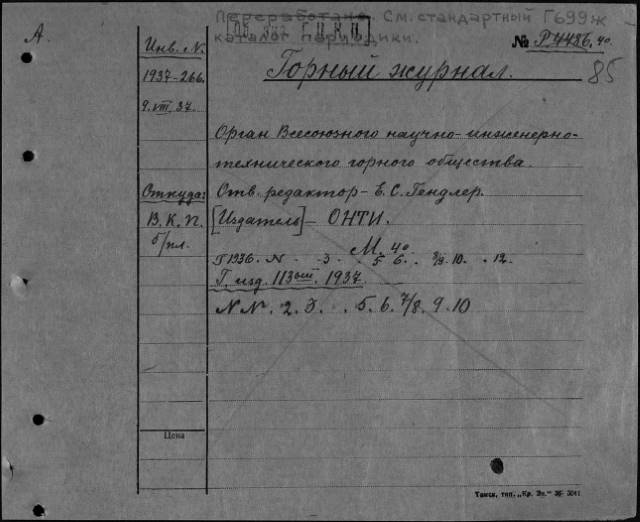 Переработано. См. стандартный Г699ж
каталог периодики.
А.
№ Р4486.40.
85
Инв. N.
1937-266.
9.VIII.37.
Горный журнал.
Орган Всесоюзного научно-инженерно-
технического горного общества.
Откуда:
В. К. П.
б/пл.
Отв. редактор - Е. С. Гендлер.
[Издатель] - ОНТИ.
М. 40
Г 1936. N . 3 . 5 6 . 8/9. 10 . 12.
Г. изд. 113ый. 1937.
N N. 2. 3. . 5. 6. 7/8. 9. 10
Цена
Томск, тип. „Кр. Зн.“ 36 3041